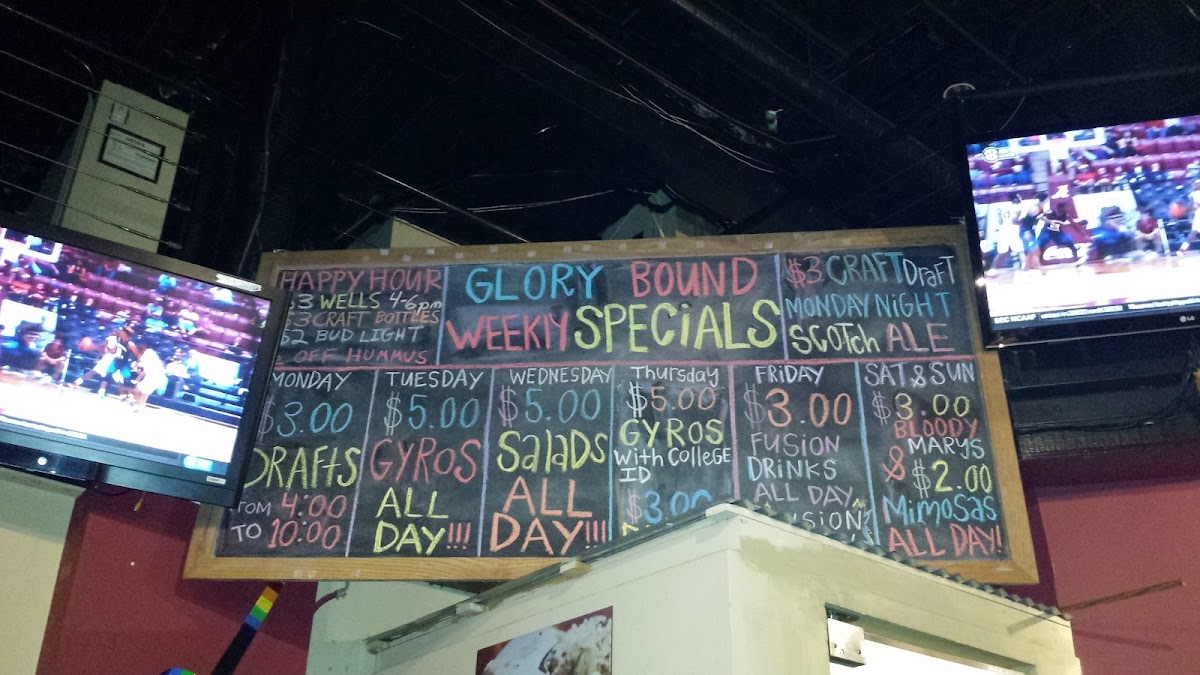 HAPPY HOUR
$3 WELLS 4-6pm
$3 CRAFT BOTTLES
$2 BUD LIGHT
OFF HUMMUS
GLORY BOUND
WEEKLY SPECIALS
$3 CRAFT DrafT
MONDAY NIGHT
SCOTCH ALE
MONDAY
$3.00
DRAFTS
FROM 4:00
TO 10:00
TUESDAY
$5.00
GYROS
ALL
DAY!!!
WEDNESDAY
$5.00
SalaDS
ALL
DAY!!!
Thursday
$5.00
GYROS
WiTH COLLEGE
ID
$3.00
FRIDAY
$3.00
FUSION
DRiNKS
ALL DAY
SAT & SUN
$3.00
BLOODY
MARYS
& $2.00
MimoSas
ALL DAY!
SEC NCAAF